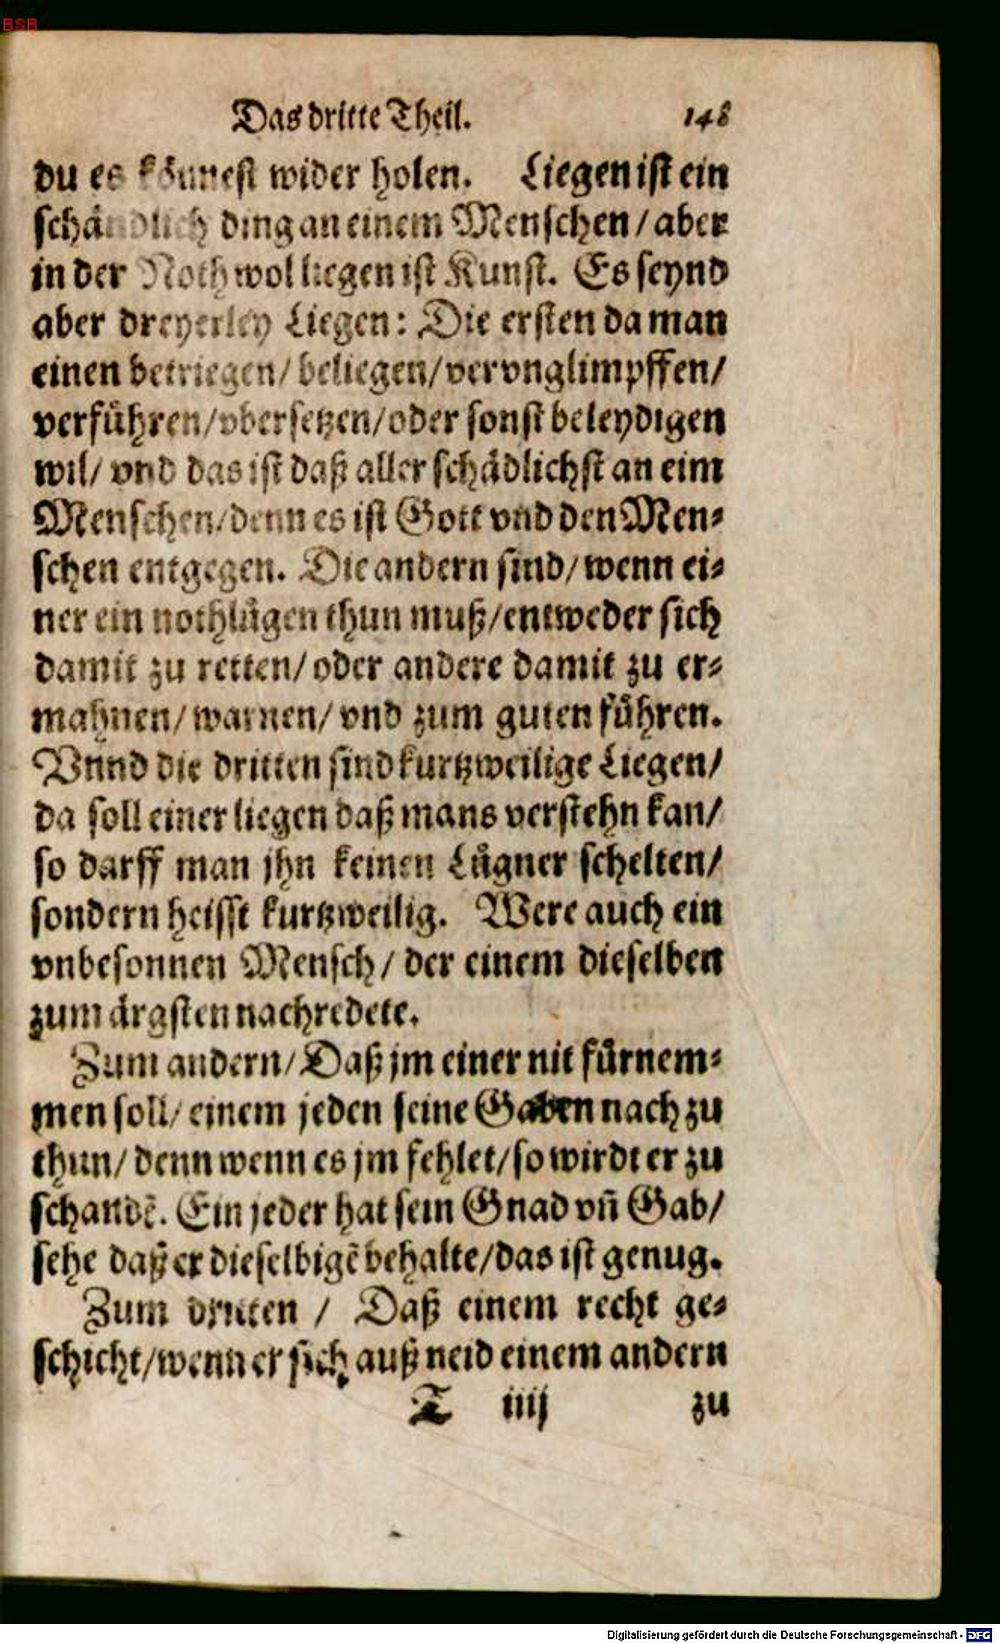 BSB
Das dritte Theil. 148
du es könnest wider holen. Liegen ist ein
schändlich ding an einem Menschen / aber
in der Noth wol liegen ist Kunst. Es seynd
aber dreyerley Liegen: Die ersten da man
einen betriegen / beliegen / vervnglimpffen /
verführen / vbersetzen / oder sonst beleydigen
wil / vnd das ist daß aller schädlichst an eim
Menschen / denn es ist Gott vnd den Men-
schen entgegen. Die andern sind / wenn ei-
ner ein nothlügen thun muß / entweder sich
damit zu retten / oder andere damit zu er-
mahnen / warnen / vnd zum guten führen.
Vnnd die dritten sind kurtzweilige Liegen /
da soll einer liegen daß mans verstehn kan /
so darff man jhn keinen Lügner schelten /
sondern heisst kurtzweilig. Were auch ein
vnbesonnen Mensch / der einem dieselben
zum ärgsten nachredete.
Zum andern / Daß jm einer nit fürnem-
men soll / einem jeden seine Gaben nach zu
thun / denn wenn es jm fehlet / so wirdt er zu
schandẽ. Ein jeder hat sein Gnad vñ Gab /
sehe daß er dieselbigẽ behalte / das ist genug.
Zum dritten / Daß einem recht ge-
schicht / wenn er sich auß neid einem andern
T iiij zu
Digitalisierung gefördert durch die Deutsche Forschungsgemeinschaft - DFG